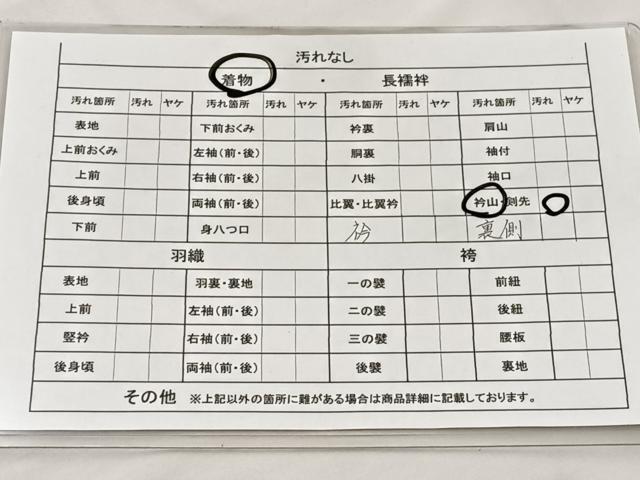 汚れなし
着物 ・ 長襦袢
汚れ箇所 汚れ ヤケ 汚れ箇所 汚れ ヤケ 汚れ箇所 汚れ ヤケ 汚れ箇所 汚れ ヤケ
表地 下前おくみ 衿裏 肩山
上前おくみ 左袖(前・後) 胴裏 袖付
上前 右袖(前・後) 八掛 袖口
後身頃 両袖(前・後) 比翼・比翼衿 衿山・剣先
下前 身八つ口 衿 裏側
羽織 袴
表地 羽裏・裏地 一の襞 前紐
上前 左袖(前・後) 二の襞 後紐
竪衿 右袖(前・後) 三の襞 腰板
後身頃 両袖(前・後) 後襞 裏地
その他 ※上記以外の箇所に難がある場合は商品詳細に記載しております。